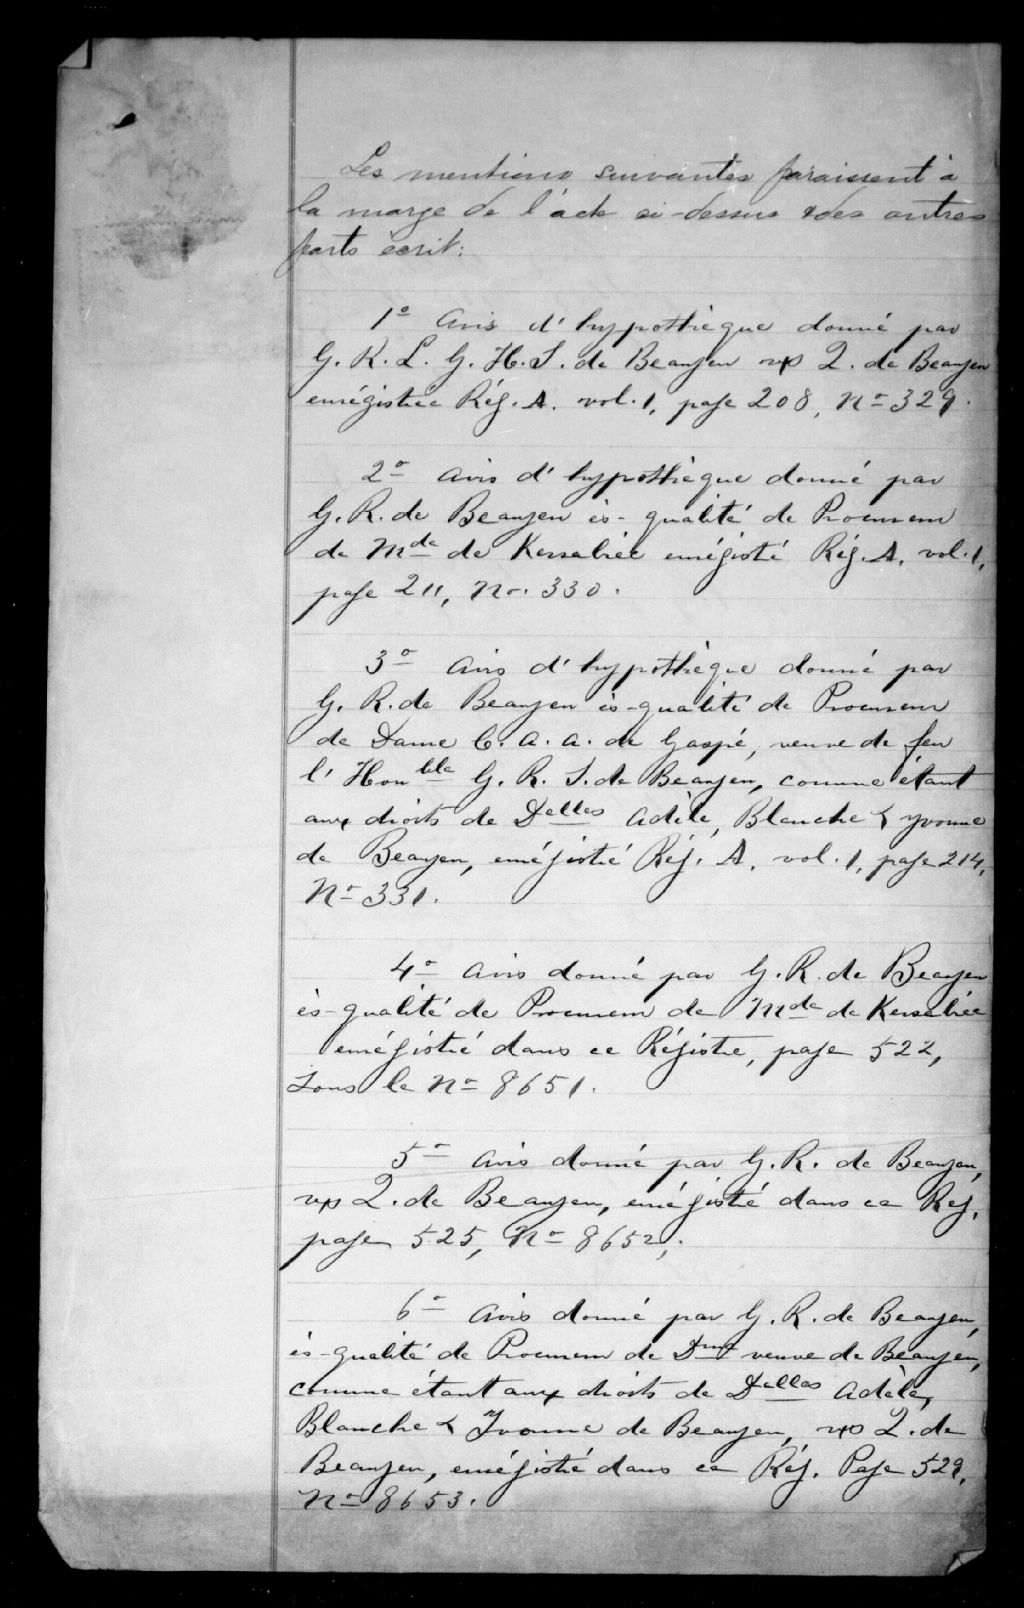 Les mentions suivantes paraissent à
la marge de l'acte ci-dessus & des autres
parts écrit:
1º Avis d'hypothèque donné par
G. R. L. G. H. S. de Beaujeu vs Q. de Beaujeu
enrégistrée Rég. A. vol. 1, page 208, Nº 329.
2º Avis d'hypothèque donné par
G. R. de Beaujeu ès-qualité de Procureur
de Mde de Kersabiec enrégistré Rég. A. vol. 1,
page 211, No. 330.
3º Avis d'hypothèque donné par
G. R. de Beaujeu ès-qualité de Procureur
de Dame C. A. A. de Gaspé, veuve de feu
l'Honble G. R. S. de Beaujeu, comme étant
aux droits de Delles Adèle, Blanche & Yvonne
de Beaujeu, enrégistré Rég. A, vol. 1, page 214,
Nº 331.
4º Avis donné par G. R. de Beaujeu
ès-qualité de Procureur de Mde de Kersabiec
enrégistré dans ce Régistre, page 522,
sous le Nº 8651.
5º Avis donné par G. R. de Beaujeu,
vs Q. de Beaujeu, enrégistré dans ce Rég.
page 525, Nº 8652,.
6º Avis donné par G. R. de Beaujeu,
ès-qualité de Procureur de Dme veuve de Beaujeu,
comme étant aux droits de Delles Adèle,
Blanche & Yvonne de Beaujeu, vs Q. de
Beaujeu, enrégistré dans ce Rég. Page 529,
Nº 8653.